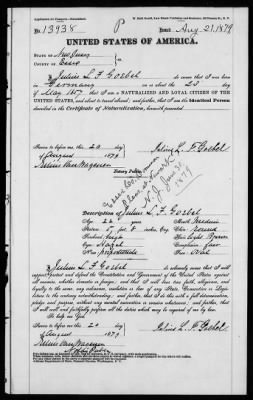 No. 13938
P
Issued Aug 21, 1879
UNITED STATES OF AMERICA.
STATE OF New Jersey
COUNTY OF Essex
I Julius L. F. Goebel do swear that I was born
in Germany on the 20 day
of May 1857 that I am a NATURALIZED AND LOYAL CITIZEN OF THE
UNITED STATES, and about to travel abroad; and further, that I am the Identical Person
described in the Certificate of Naturalization, herewith presented.
Sworn to before me this 20 day
of August 1879
Julius L. F. Goebel
Notary Public.
Description of Julius L. F. Goebel
Age 22 years
Mouth Medium
Stature 5 feet 8 inches, Eng.
Chin round
Forehead high
Hair Light Brown
Eyes Hazel
Complexion fair
Nose proportionate
Face Oval
I Julius L. F. Goebel do solemnly swear that I will
support, protect and defend the Constitution and Government of the United States against
all enemies, whether domestic or foreign; and that I will bear true faith, allegiance,
and loyalty to the same, any ordinance, resolution or law of any State, Convention or Legislature
to the contrary notwithstanding; and further, that I do this with a full determination,
pledge and purpose, without any mental reservation or evasion whatsoever, and further, that
I will well and faithfully perform all the duties which may be required of me by law.
So help me God.
Sworn to before me this 20 day
of August 1879
Julius L. F. Goebel
Notary Public